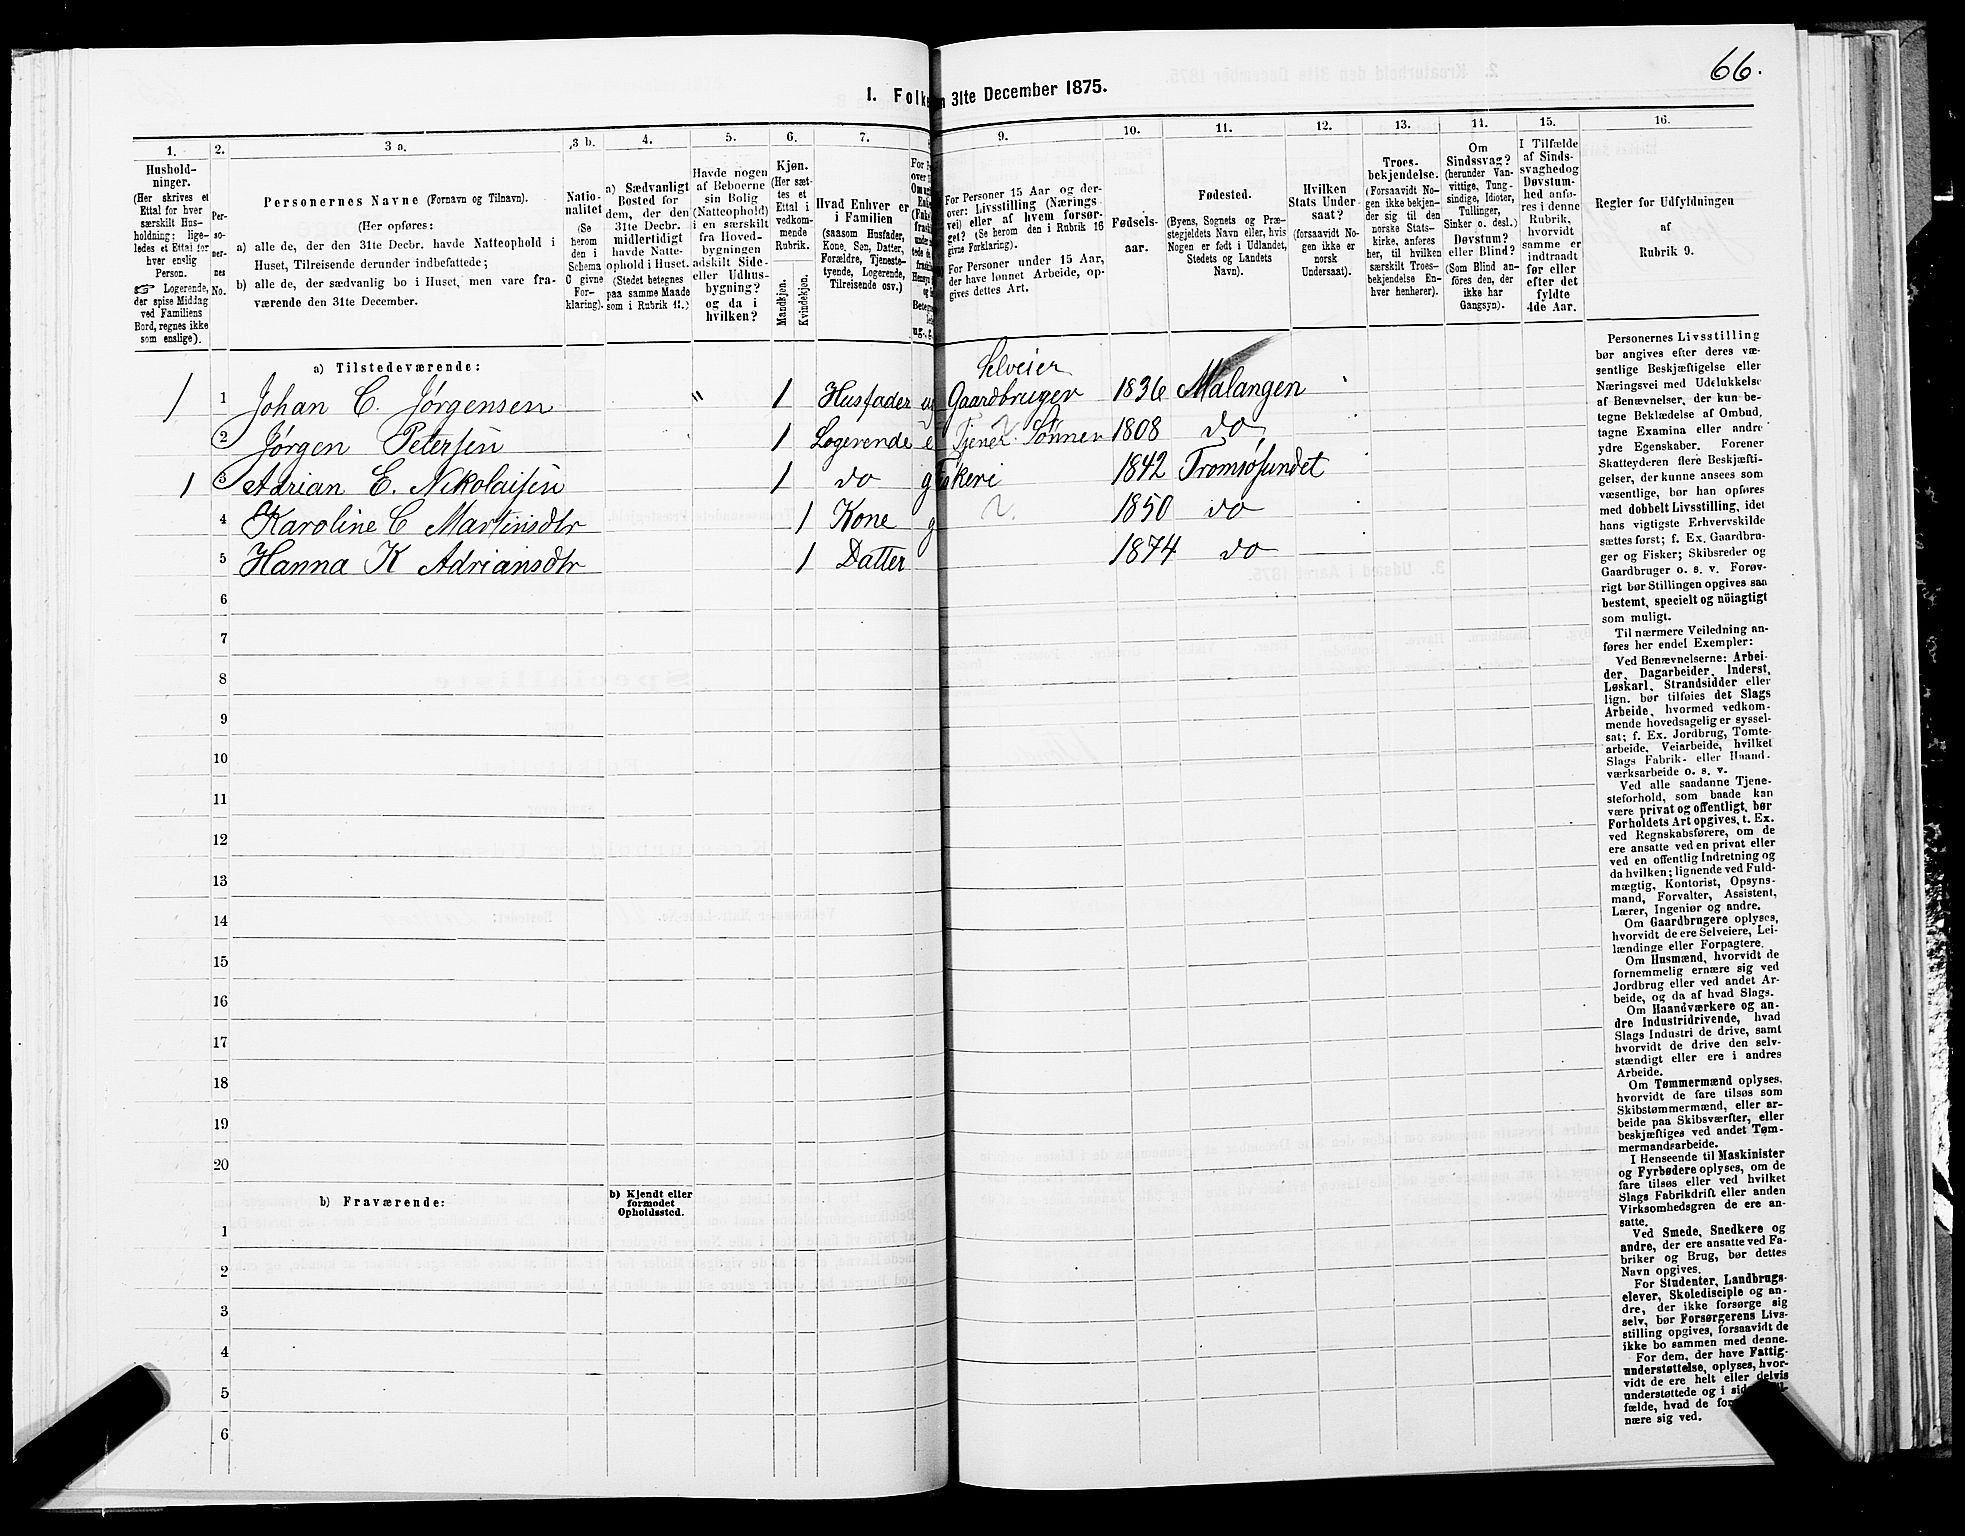 66.
I. Folke
n 31te December 1875.
1. 2. 3 a. 3 b. 4. 5. 6. 7. 9. 10. 11. 12. 13. 14. 15. 16.
Hushold-
ninger.
(Her skrives et
Ettal for hver
særskilt Hus-
holdning; lige-
ledes et Ettal for
hver enslig
Person.
☞ Logerende,
der spise Middag
ved Familiens
Bord, regnes ikke
som enslige).
Per-
so-
ner-
nes
No.
Personernes Navne (Fornavn og Tilnavn).
(Her opføres:
a) alle de, der den 31te Decbr. havde Natteophold i
Huset, Tilreisende derunder indbefattede;
b) alle de, der sædvanlig bo i Huset, men vare fra-
værende den 31te December.
Natio-
nalitet
(Se
herom
den i
Schema
C givne
For-
klaring).
a) Sædvanligt
Bosted for
dem, der den
31te Decbr.
midlertidigt
havde Natte-
ophold i Huset.
(Stedet betegnes
paa samme Maade
som i Rubrik 11.)
Havde nogen
af Beboerne
sin Bolig
(Natteophold)
i en særskilt
fra Hoved-
bygningen
adskilt Side-
eller Udhus-
bygning?
og da i
hvilken?
Kjøn.
(Her sæt-
tes et
Ettal i
vedkom-
mende
Rubrik.
Mandkjøn.
Kvindekjøn.
Hvad Enhver er
i Familien
(saasom Husfader,
Kone, Søn, Datter,
Forældre, Tjeneste-
tyende, Logerende,
Tilreisende osv.)
For Personer 15 Aar og der-
over: Livsstilling (Nærings-
vei) eller af hvem forsør-
get? (Se herom den i Rubrik 16
givne Forklaring).
For Personer under 15 Aar,
der have lønnet Arbeide, op-
gives dettes Art.
Fødsels-
aar.
Fødested.
(Byens, Sognets og Præ-
stegjeldets Navn eller, hvis
Nogen er født i Udlandet,
Stedets og Landets
Navn).
Hvilken
Stats Under-
saat?
(forsaavidt No-
gen ikke er
norsk
Undersaat).
Troes-
bekjendelse.
(Forsaavidt No-
gen ikke bekjen-
der sig til den
norske Stats-
kirke, anføres
her, til hvilken
særskilt Troes-
bekjendelse En-
hver henhører).
Om
Sindssvag?
(herunder Van-
vittige, Tung-
sindige, Idioter,
Tullinger,
Sinker o. desl.)
Døvstum?
eller Blind?
(Som Blind an-
føres den, der
ikke har
Gangsyn).
I Tilfælde
af Sinds-
svaghed og
Døvstum-
hed anfø-
res i denne
Rubrik,
hvorvidt
samme er
indtraadt
før eller
efter det
fyldte
4de Aar.
Regler for Udfyldningen
af
Rubrik 9.
a) Tilstedeværende:
Selveier
1 1 Johan C. Jørgensen " 1 Husfader Gaardbruger 1836 Malangen
2 Jørgen Petersen 1 Logerende e Tjener Sønnen 1808 do
1 3 Adrian E. Nikolaisen 1 do g Fiskeri 1842 Tromsøsundet
4 Karoline C Martinsdtr 1 Kone g 1850 do
5 Hanna K Adriansdtr 1 Datter 1874 do
6
7
8
9
10
11
12
13
14
15
16
17
18
19
20
b) Fraværende:
b) Kjendt eller
formodet
Opholdssted.
1
2
3
4
5
6
Personernes Livsstilling
bør angives efter deres væ-
sentlige Beskjæftigelse eller
Næringsvei med Udelukkelse
af Benævnelser, der kun be-
tegne Beklædelse af Ombud,
tagne Examina eller andre
ydre Egenskaber. Forener
Skatteyderen flere Beskjæfti-
gelser, der kunne ansees som
væsentlige, bør han opføres
med dobbelt Livsstilling, idet
hans vigtigste Erhvervskilde
sættes først; f. Ex. Gaardbru-
ger og Fisker; Skibsreder og
Gaardbruger o. s. v. Forøv-
rigt bør Stillingen opgives saa
bestemt, specielt og nöiagtigt
som muligt.
Til nærmere Veiledning an-
føres her endel Exempler:
Ved Benævnelserne: Arbei-
der, Dagarbeider, Inderst,
Løskarl, Strandsidder eller
lign. bør tilføies det Slags
Arbeide, hvormed vedkom-
mende hovedsagelig er syssel-
sat; f. Ex. Jordbrug, Tomte-
arbeide, Veiarbeide, hvilket
Slags Fabrik- eller Haand-
værksarbeide o. s. v.
Ved alle saadanne Tjene-
steforhold, som baade kan
være privat og offentligt, bør
Forholdets Art opgives, t. Ex.
ved Regnskabsførere, om de
ere ansatte ved en privat eller
ved en offentlig Indretning og
da hvilken; lignende ved Fuld-
mægtig, Kontorist, Opsyns-
mand, Forvalter, Assistent,
Lærer, Ingeniør og andre.
Om Gaardbrugere oplyses,
hvorvidt de ere Selveiere, Lei-
lændinge eller Forpagtere.
Om Husmænd, hvorvidt de
fornemmelig ernære sig ved
Jordbrug eller ved andet Ar-
beide, og da af hvad Slags.
Om Haandværkere og an-
dre Industridrivende, hvad
Slags Industri de drive, samt
hvorvidt de drive den selv-
stændigt eller ere i andres
Arbeide.
Om Tømmermænd oplyses,
hvorvidt de fare tilsøs som
Skibstømmermænd, eller ar-
beide paa Skibsværfter, eller
beskjæftiges ved andet Tøm-
mermandsarbeide.
I Henseende til Maskinister
og Fyrbødere oplyses, om de
fare tilsøs eller ved hvilket
Slags Fabrikdrift eller anden
Virksomhedsgren de ere an-
satte.
Ved Smede, Snedkere og
andre, der ere ansatte ved Fa-
briker og Brug, bør dettes
Navn opgives.
For Studenter, Landbrugs-
elever, Skoledisciple og an-
dre, der ikke forsørge sig
selv, bør Forsørgerens Livs-
stilling opgives, forsaavidt de
ikke bo sammen med denne.
For dem, der have Fattig-
understøttelse, oplyses, hvor-
vidt de ere helt eller delvis
understøttede og i sid
fælde, hvad de for
nære sig ved.